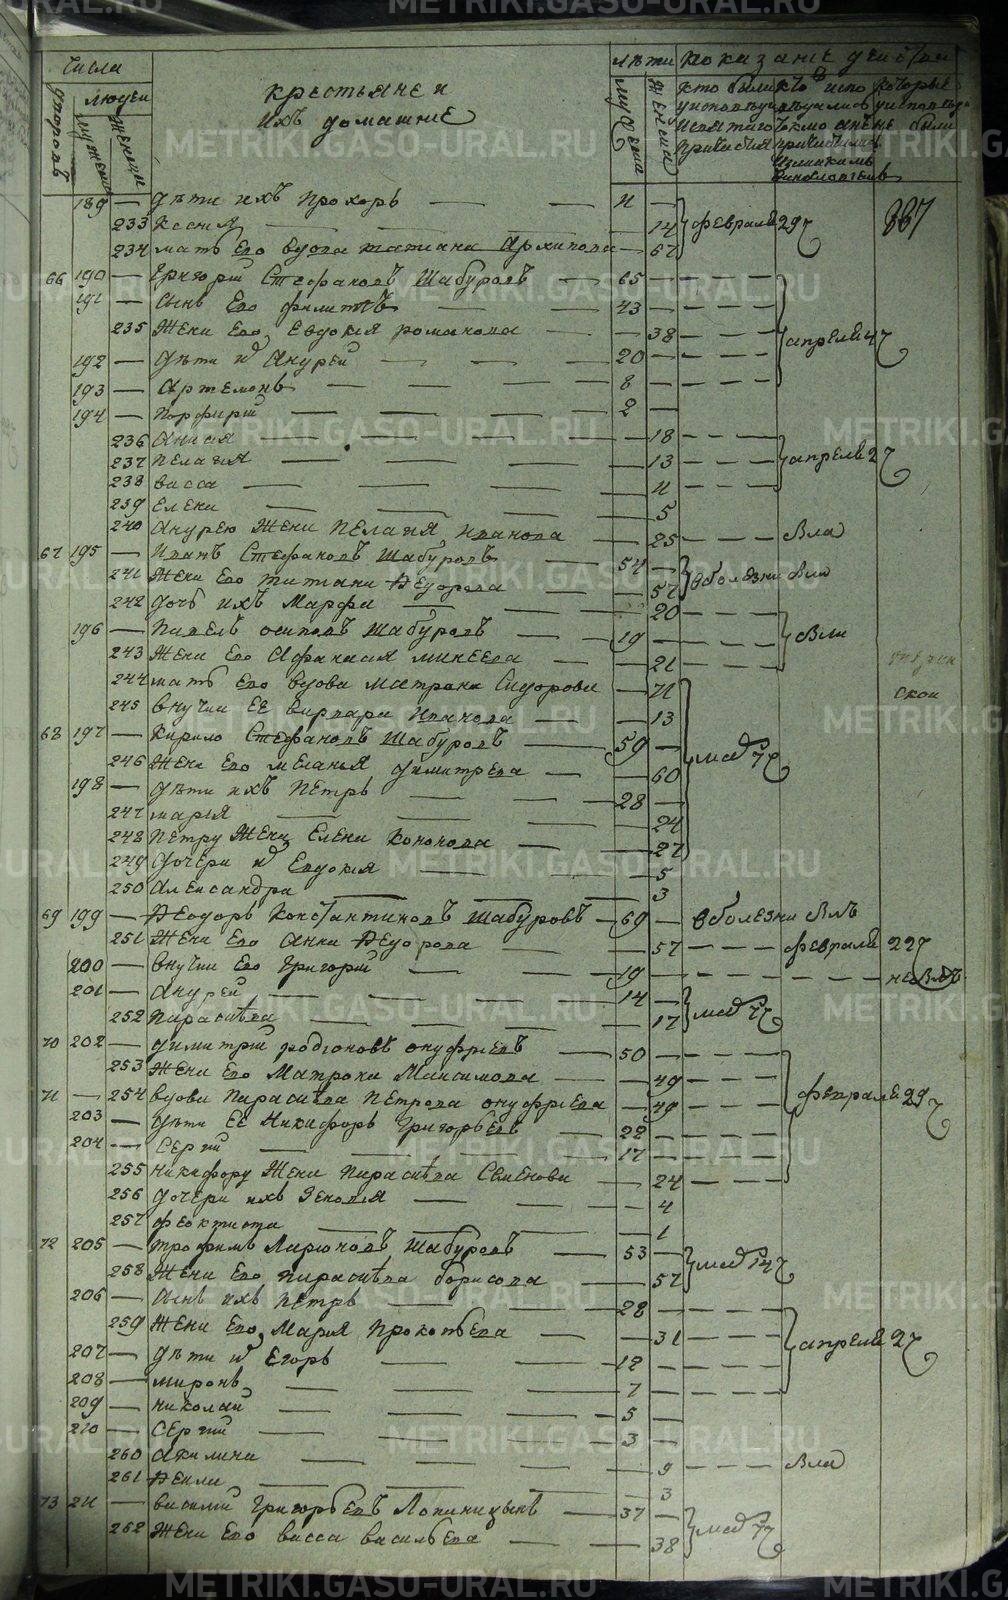 числа
лѣти показание действа
дворовъ
людей
мужеска
женска
крестьяне и
ихъ домашние
мужеска
женска
кто были
у исповеди
и святаго
причастия
которые
189 — дѣти ихъ прохоръ — 11 —
233 — 14 февраля 29
867
234 мать его вдова татиана Архипова — 67
66 190 — Григорий Стефановъ Шабуровъ — 65
191 — сынъ его филиппъ — 43
235 жена его Евдокия романова — 38 апреля 4
192 — дѣти и Андрей — 20
193 — Артемонъ — 8
194 — порфирий — 2 —
236 — 18
237 пелагия — 13 апреля 27
238 васса — 11
239 елена — 5
240 андрею жена пелагия иванова — 25 вла
67 195 — иванъ Стефановъ Шабуровъ — 54 —
241 жена его татиана Феодорова — 57 в болезни вла
242 дочь ихъ марфа — 20
196 — павелъ осиповъ шабуровъ — 19 вли
243 жена его Афанасия минеева — 21
244 мать его вдова матрона Сидорова — 71
ской
245 внучка ее варвара иванова — 13
68 197 — кирило Стефановъ Шабуровъ — 59 —
246 жена его меланья димитрева — 60 маа 7
198 — дѣти ихъ петръ — 28 —
247 мария — 24
248 петру жена елена кононова — 27
249 дочери и евдокия — 5
250 александра — 3
69 199 — Феодоръ константиновъ шабуровъ — 69 — в болезни влъ
251 жена его анна Феодорова — 57 февраля 22
200 — внучки его григорий — 19 не влъ
201 — андрей — 14 —
252 параскева — 17 маа 7
70 202 — димитрий родионовъ ануфриевъ — 50 —
253 жена его матрона максимова — 49
71 — 254 вдова параскева петрова ануфриева — 49 февраля 29
203 — дѣти ее никифоръ григорьевъ — 22
204 — сергий — 17
255 никифору жена параскева семенова — 24
256 дочери ихъ зеновия — 4
257 феоктиста — 1
72 205 — трофимъ ларионовъ шабуровъ — 53 —
258 жена его параскева борисова — 57 маа 14
206 — сынъ ихъ петръ — 28
259 жена его мария прокопьева — 31 апреля 27
207 — дѣти и егоръ — 12
208 — миронъ — 7
209 — николай — 5 —
210 — сергий — 3 —
260 акилина — 9 вла
261 Фекла — 3
73 211 — василий григорьевъ — 37 —
262 жена его васса васильева — 38 маа 7
METRIKI.GASO-URAL.RU